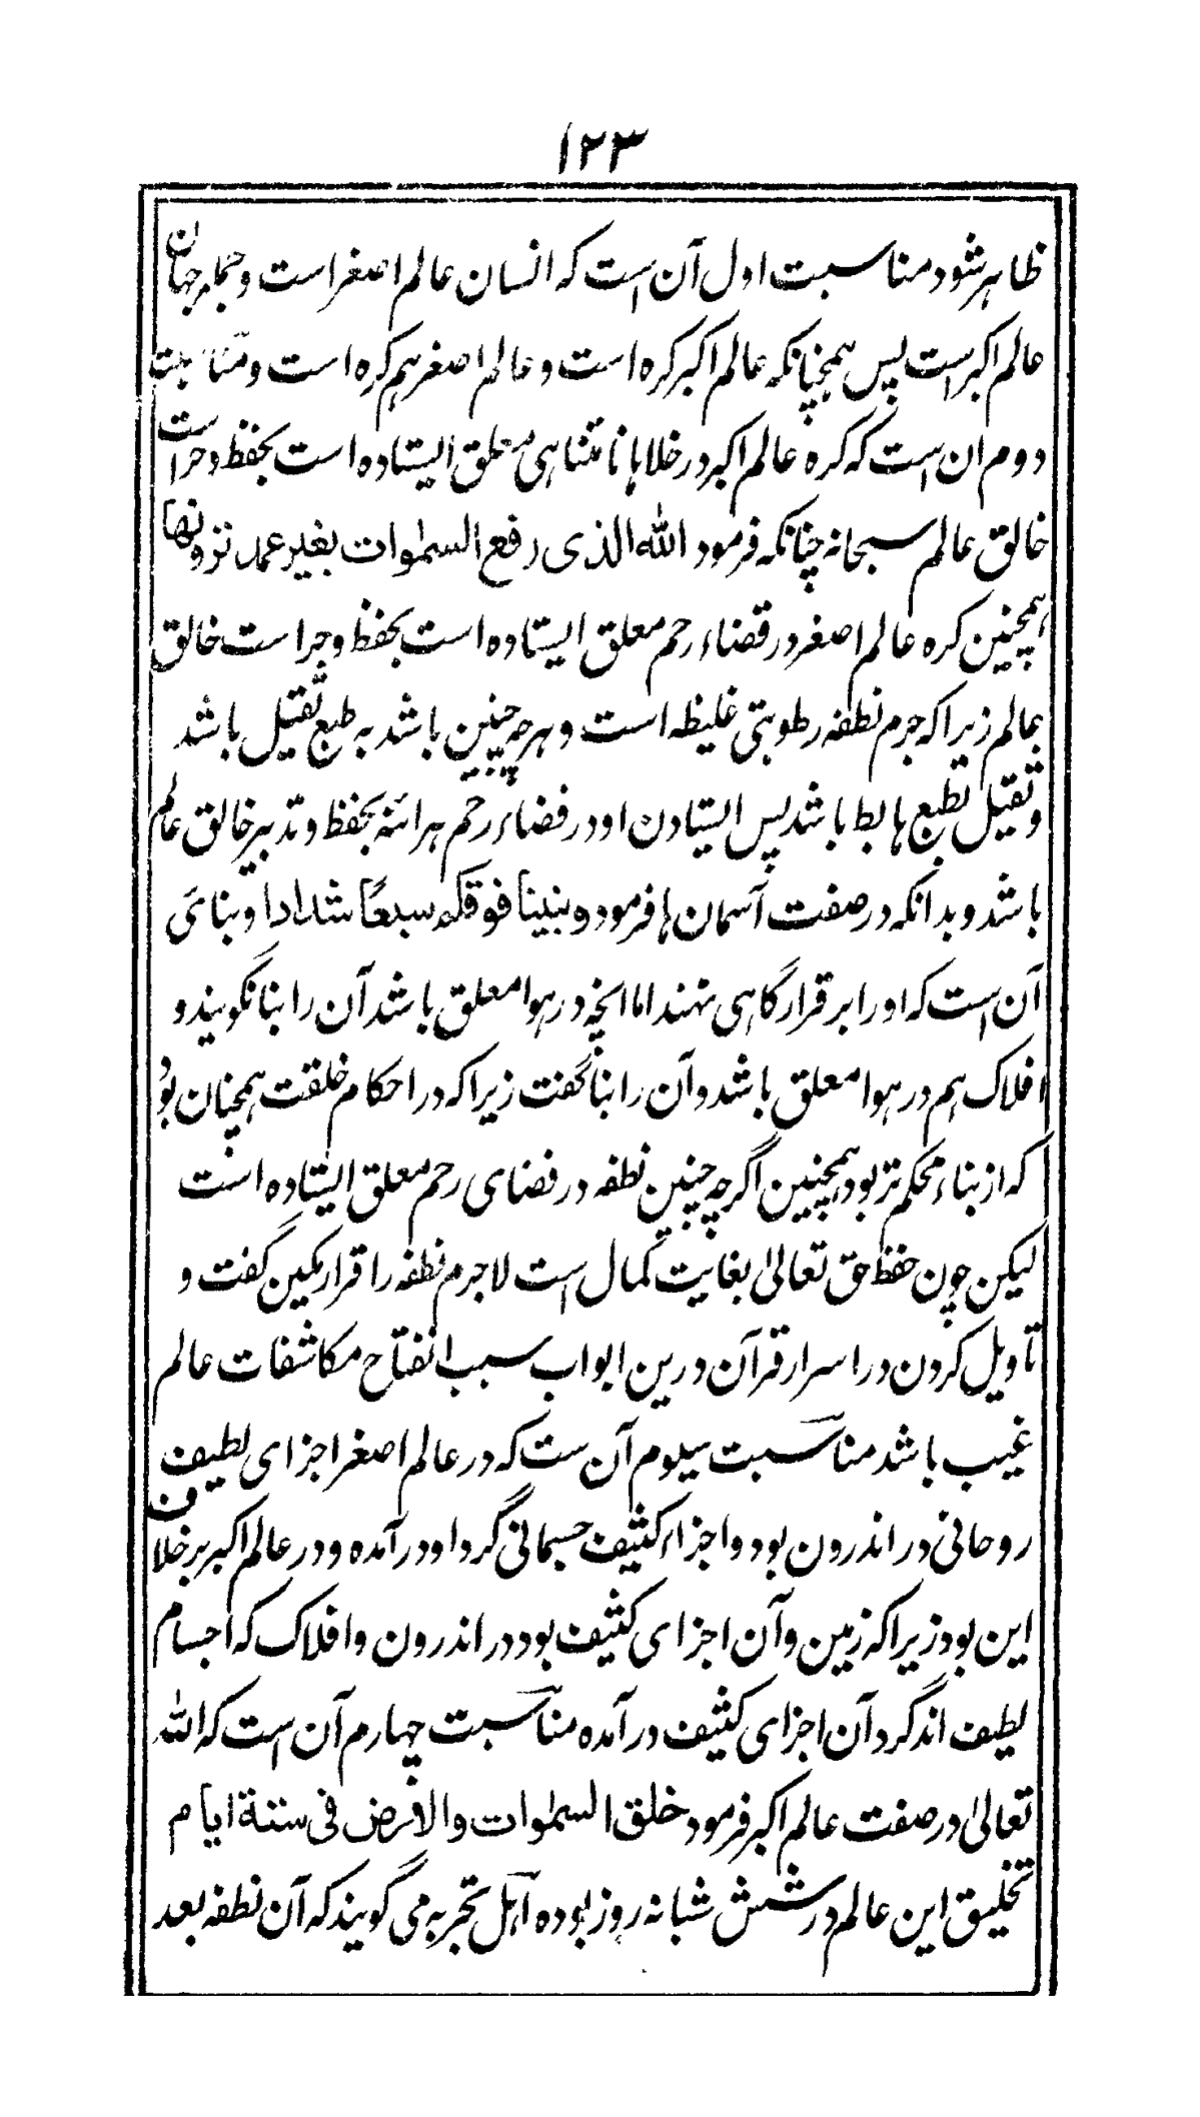 ۱۲۳
ظاہر شود مناسبت اول آن ست کہ انسان عالم اصغر است و جملہ جہان
عالم اکبر ست پس ہمچنانکہ عالم اکبر کرہ است و عالم اصغر ہم کرہ است و مناسبت
دوم ان ست کہ کرہ عالم اکبر در خلاہا نا متناہی معلق ایستادہ است بحفظ و حراست
خالق عالم سبحانہ چنانکہ فرمود اللہ الذی رفع السمٰوات بغیر عمد ترونھا
ہمچنین کرہ عالم اصغر در قضاء رحم معلق ایستادہ است بحفظ و حراست خالق
عالم زیرا کہ جرم نطفہ رطوبتی غلیظہ است و ہرچہ چنین باشد بہ طبع ثقیل باشد
و ثقیل بطبع ہابط باشد پس ایستادن او در فضاء رحم ہرائنہ بحفظ و تدبیر خالق عالم
باشد و بدانکہ در صفت آسمان ہا فرمود و بنینا فوقکم سبعًا شدادا و بنائی
آن ست کہ او را بر قرار گاہی نہند اما انچہ در ہوا معلق باشد آن را بنا نگویند و
افلاک ہم در ہوا معلق باشد و آن را بنا گفت زیرا کہ در احکام خلقت ہمچنان بود
کہ از بناء محکم تر بود ہمچنین اگرچہ چنین نطفہ در فضای رحم معلق ایستادہ است
لیکن چون حفظ حق تعالیٰ بغایت کمال ست لاجرم نطفہ را قرار مکین گفت و
تاویل کردن در اسرار قرآن درین ابواب سبب انفتاح مکاشفات عالم
غیب باشد مناسبت سیوم آن ست کہ در عالم اصغر اجزای لطیف
روحانی در اندرون بود و اجزاء کثیف جسمانی گرد او درآمدہ و در عالم اکبر بر خلاف
این بود زیرا کہ زمین و آن اجزای کثیف بود در اندرون و افلاک کہ اجسام
لطیف اند گرد آن اجزای کثیف درآمدہ مناسبت چہارم آن ست کہ اللہ
تعالیٰ در صفت عالم اکبر فرمود خلق السمٰوات والارض فی ستة ایام
تخلیق این عالم در شش شبانہ روز بودہ اہل تجربہ می گویند کہ آن نطفہ بعد